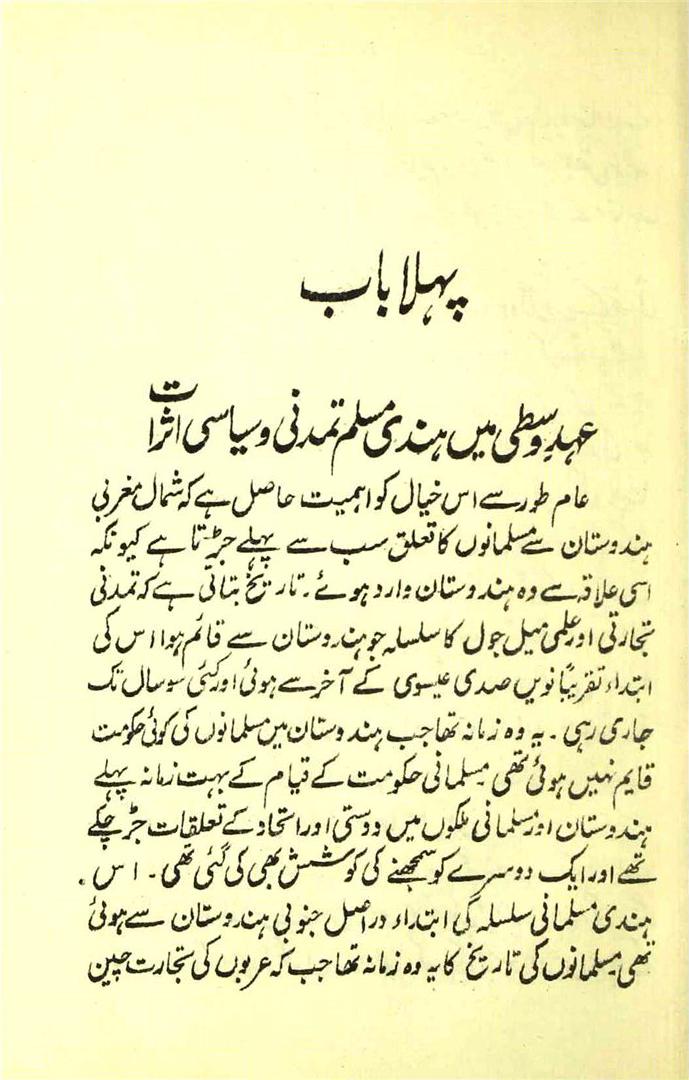 پہلا باب
عہدِ وسطٰی میں ہندی مسلم تمدنی و سیاسی اثرات
عام طور سے اس خیال کو اہمیت حاصل ہے کہ شمال مغربی
ہندوستان سے مسلمانوں کا تعلق سب سے پہلے جڑتا ہے کیونکہ
اسی علاقہ سے وہ ہندوستان وارد ہوئے۔ تاریخ بتاتی ہے کہ تمدنی
تجارتی اور علمی میل جول کا سلسلہ جو ہندوستان سے قائم ہوا اس کی
ابتداء تقریباً نویں صدی عیسوی کے آخر سے ہوئی اور کئی سو سال تک
جاری رہی۔ یہ وہ زمانہ تھا جب ہندوستان میں مسلمانوں کی کوئی حکومت
قایم نہیں ہوئی تھی مسلمانی حکومت کے قیام کے بہت زمانہ پہلے
ہندوستان اور مسلمانی ملکوں میں دوستی اور اتحاد کے تعلقات جڑ چکے
تھے اور ایک دوسرے کو سمجھنے کی کوشش بھی کی گئی تھی۔ اس
ہندی مسلمانی سلسلہ کی ابتداء دراصل جنوبی ہندوستان سے ہوئی
تھی مسلمانوں کی تاریخ کا یہ وہ زمانہ تھا جب کہ عربوں کی تجارت چین